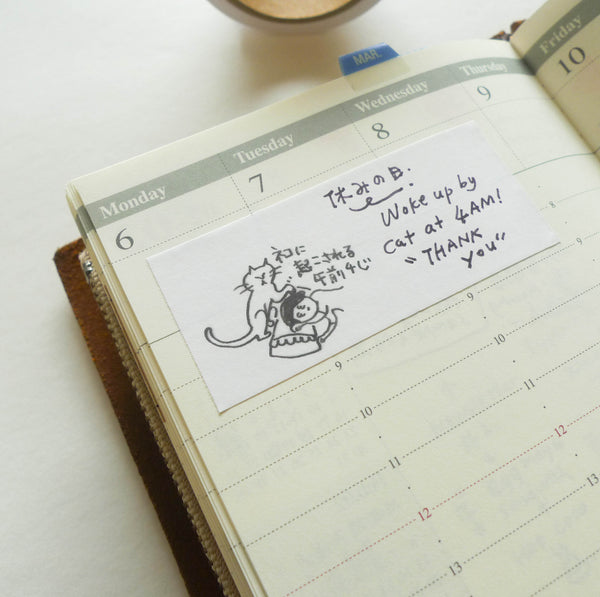 MAR.
Monday
Tuesday
Wednesday
Thursday
Friday
6
7
8
9
10
休みの日.
Woke up by
cat at 4AM!
"THANK
YOU"
ネコに
起こされる
午前4じ
9
9
10
10
11
11
12
12
13
13